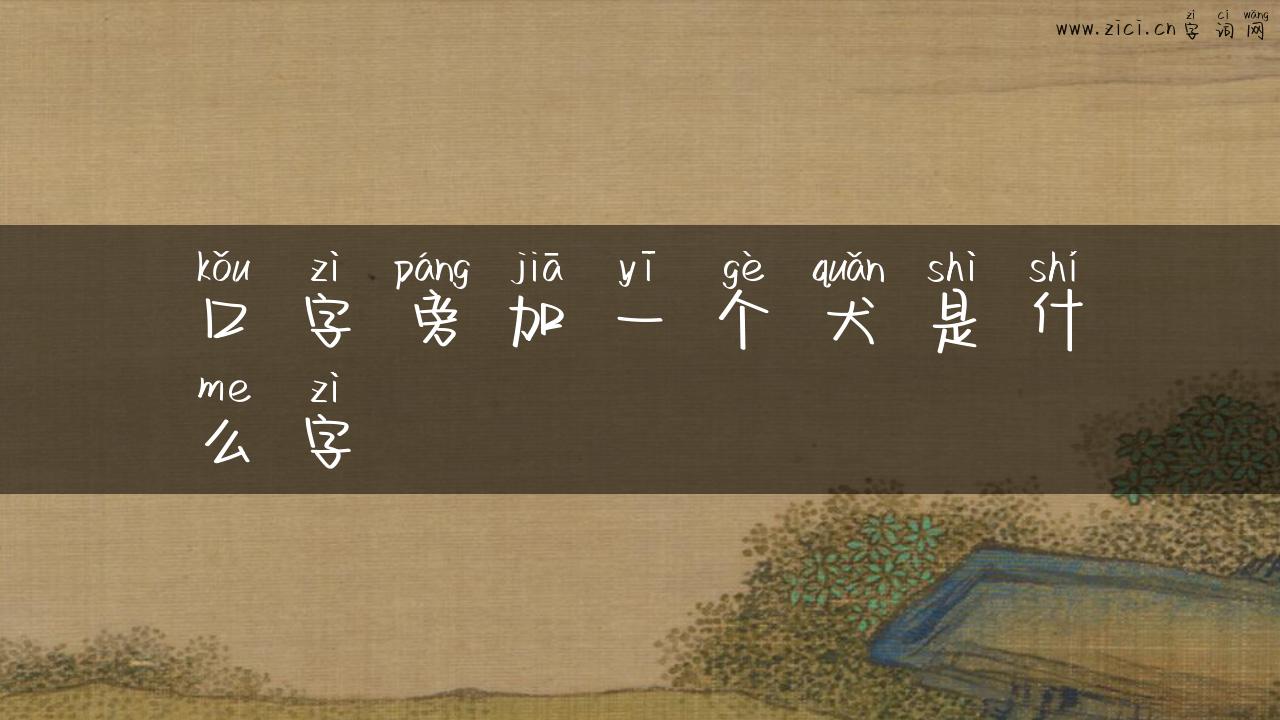 zì cí wǎng
www.zici.cn 字词网
kǒu zì páng jiā yī gè quǎn shì shí
口字旁加一个犬是什
me zì
么字